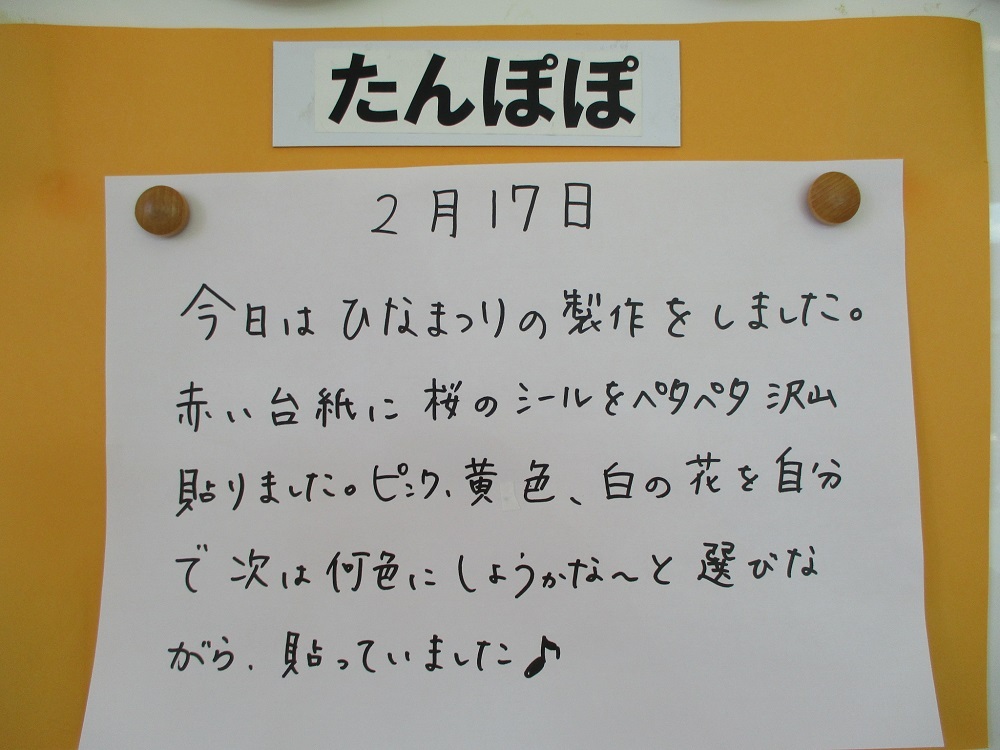 たんぽぽ
2月17日
今日はひなまつりの製作をしました。
赤い台紙に桜のシールをペタペタ沢山
貼りました。ピンク、黄色、白の花を自分
で次は何色にしようかな〜と選びな
がら、貼っていました♪